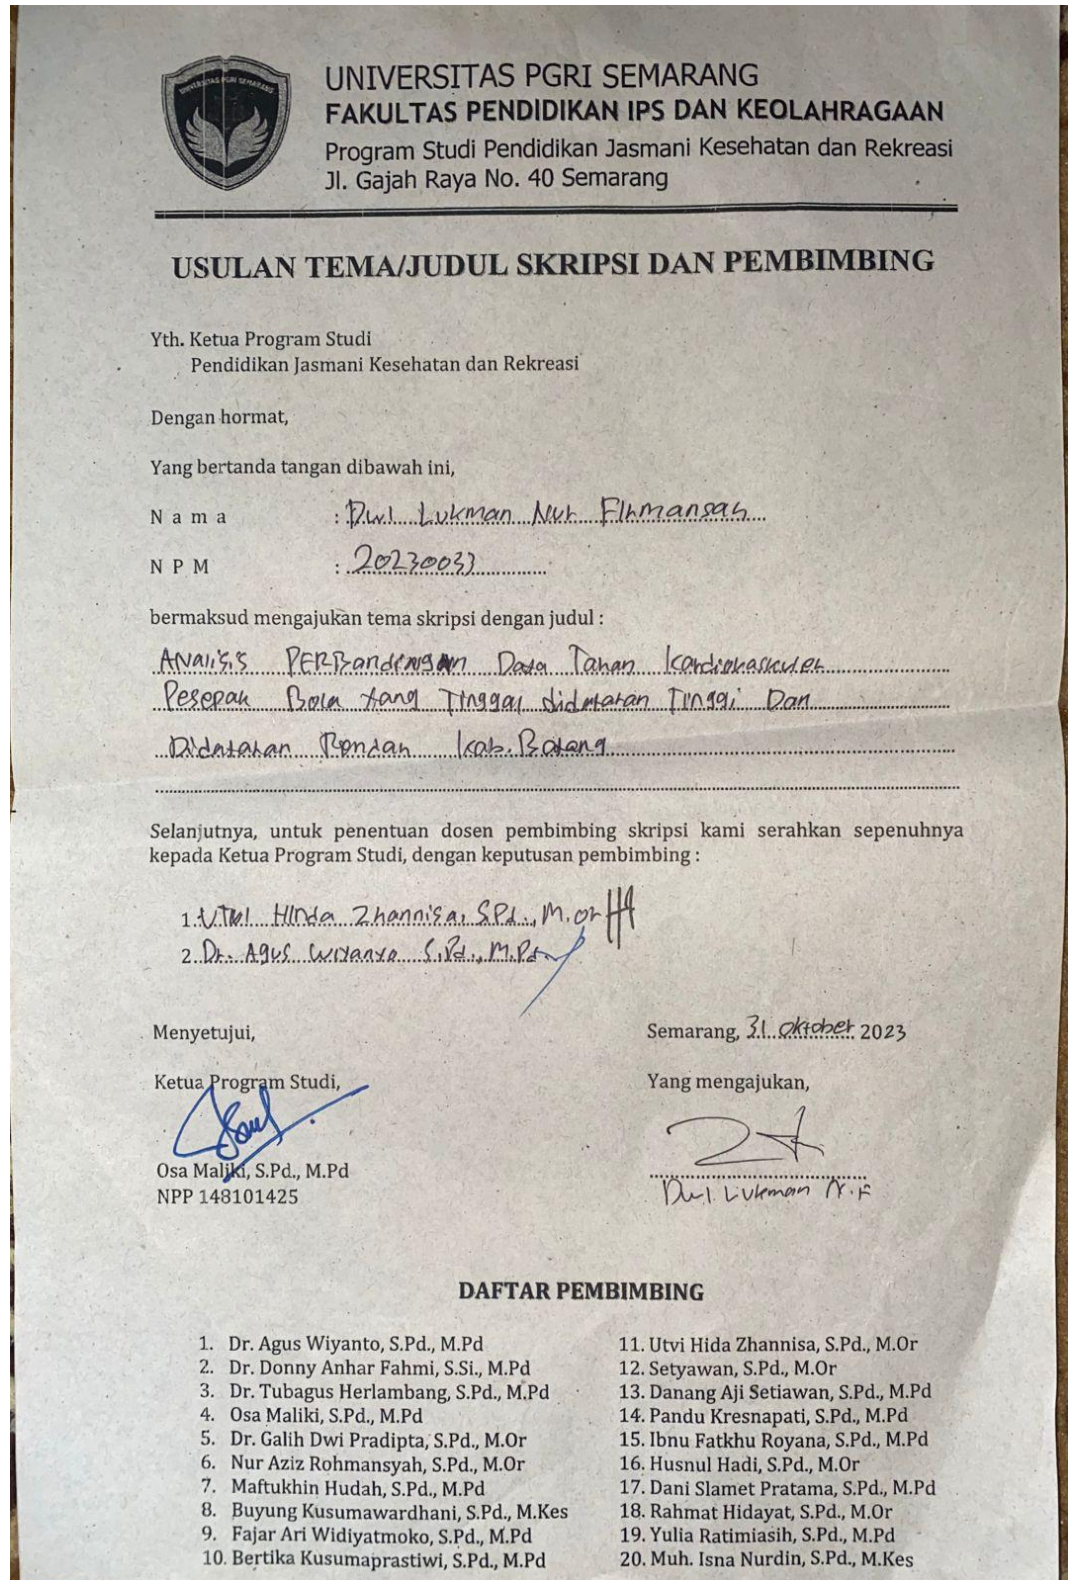 UNIVERSITAS PGRI SEMARANG
UNIVERSITAS PGRI SEMARANG
FAKULTAS PENDIDIKAN IPS DAN KEOLAHRAGAAN
Program Studi Pendidikan Jasmani Kesehatan dan Rekreasi
Jl. Gajah Raya No. 40 Semarang
USULAN TEMA/JUDUL SKRIPSI DAN PEMBIMBING
Yth. Ketua Program Studi
Pendidikan Jasmani Kesehatan dan Rekreasi
Dengan hormat,
Yang bertanda tangan dibawah ini,
N a m a : Dwi Lukman Nur Firmansah
N P M : 20230033
bermaksud mengajukan tema skripsi dengan judul :
Analisis PERBandingan Daya Tahan Kardiovaskuler
Pesepak Bola Yang Tinggal didataran Tinggi Dan
Didataran Rendah Kab. Batang
Selanjutnya, untuk penentuan dosen pembimbing skripsi kami serahkan sepenuhnya
kepada Ketua Program Studi, dengan keputusan pembimbing :
1. Utvi Hinda Zhannisa, S.Pd., M.or
2. Dr. Agus Wiyanto S.Pd., M.Pd
Menyetujui, Semarang, 31 Oktober 2023
Ketua Program Studi, Yang mengajukan,
Osa Maliki, S.Pd., M.Pd
NPP 148101425
Dwi Lukman N.F
DAFTAR PEMBIMBING
1. Dr. Agus Wiyanto, S.Pd., M.Pd
2. Dr. Donny Anhar Fahmi, S.Si., M.Pd
3. Dr. Tubagus Herlambang, S.Pd., M.Pd
4. Osa Maliki, S.Pd., M.Pd
5. Dr. Galih Dwi Pradipta, S.Pd., M.Or
6. Nur Aziz Rohmansyah, S.Pd., M.Or
7. Maftukhin Hudah, S.Pd., M.Pd
8. Buyung Kusumawardhani, S.Pd., M.Kes
9. Fajar Ari Widiyatmoko, S.Pd., M.Pd
10. Bertika Kusumaprastiwi, S.Pd., M.Pd
11. Utvi Hida Zhannisa, S.Pd., M.Or
12. Setyawan, S.Pd., M.Or
13. Danang Aji Setiawan, S.Pd., M.Pd
14. Pandu Kresnapati, S.Pd., M.Pd
15. Ibnu Fatkhu Royana, S.Pd., M.Pd
16. Husnul Hadi, S.Pd., M.Or
17. Dani Slamet Pratama, S.Pd., M.Pd
18. Rahmat Hidayat, S.Pd., M.Or
19. Yulia Ratimiasih, S.Pd., M.Pd
20. Muh. Isna Nurdin, S.Pd., M.Kes